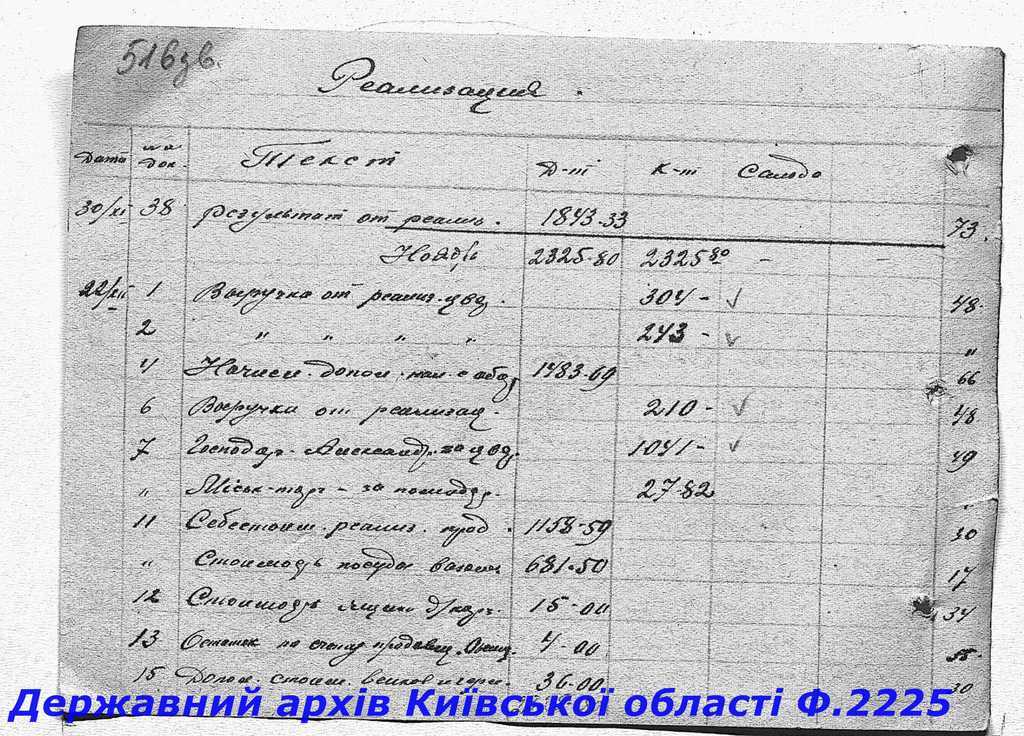 516 зв.
Реализация.
Дата №№ док. Текст Д-т К-т Сальдо
30/XI 38 Результат от реализ. 1843-33 73.
Ноябрь 2325-80 2325 80 -
22/XII 1 Выручка от реализ. цвд. 304- ✓ 48-
2 " " " " 243- ✓ "
4 Начисл. допол. нал. с обор. 1483-69 66
6 Выручка от реализац. 210- ✓ 48
7 Господар. Александр. за цвд. 1041- ✓ 49
" Міськ-торг - за помидор. 27-82 "
11 Себестоим. реализ. прод. 1158-59 30
" Стоимость посуды 681-50 17
12 Стоимость ящик. 15-00 34
13 Остаток по 4-00 55-
15 Допол. стоим. 36-00 30
Державний архів Київської області Ф.2225